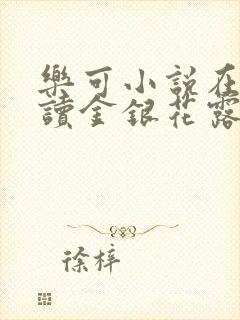 樂可小說在
讀金銀花露
徐梓